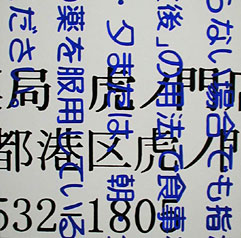 らない場合でも指
後」の用法で食事
・夕または、朝
の薬を服用している
ださい
局 虎ノ門店
都港区虎ノ門
532-180